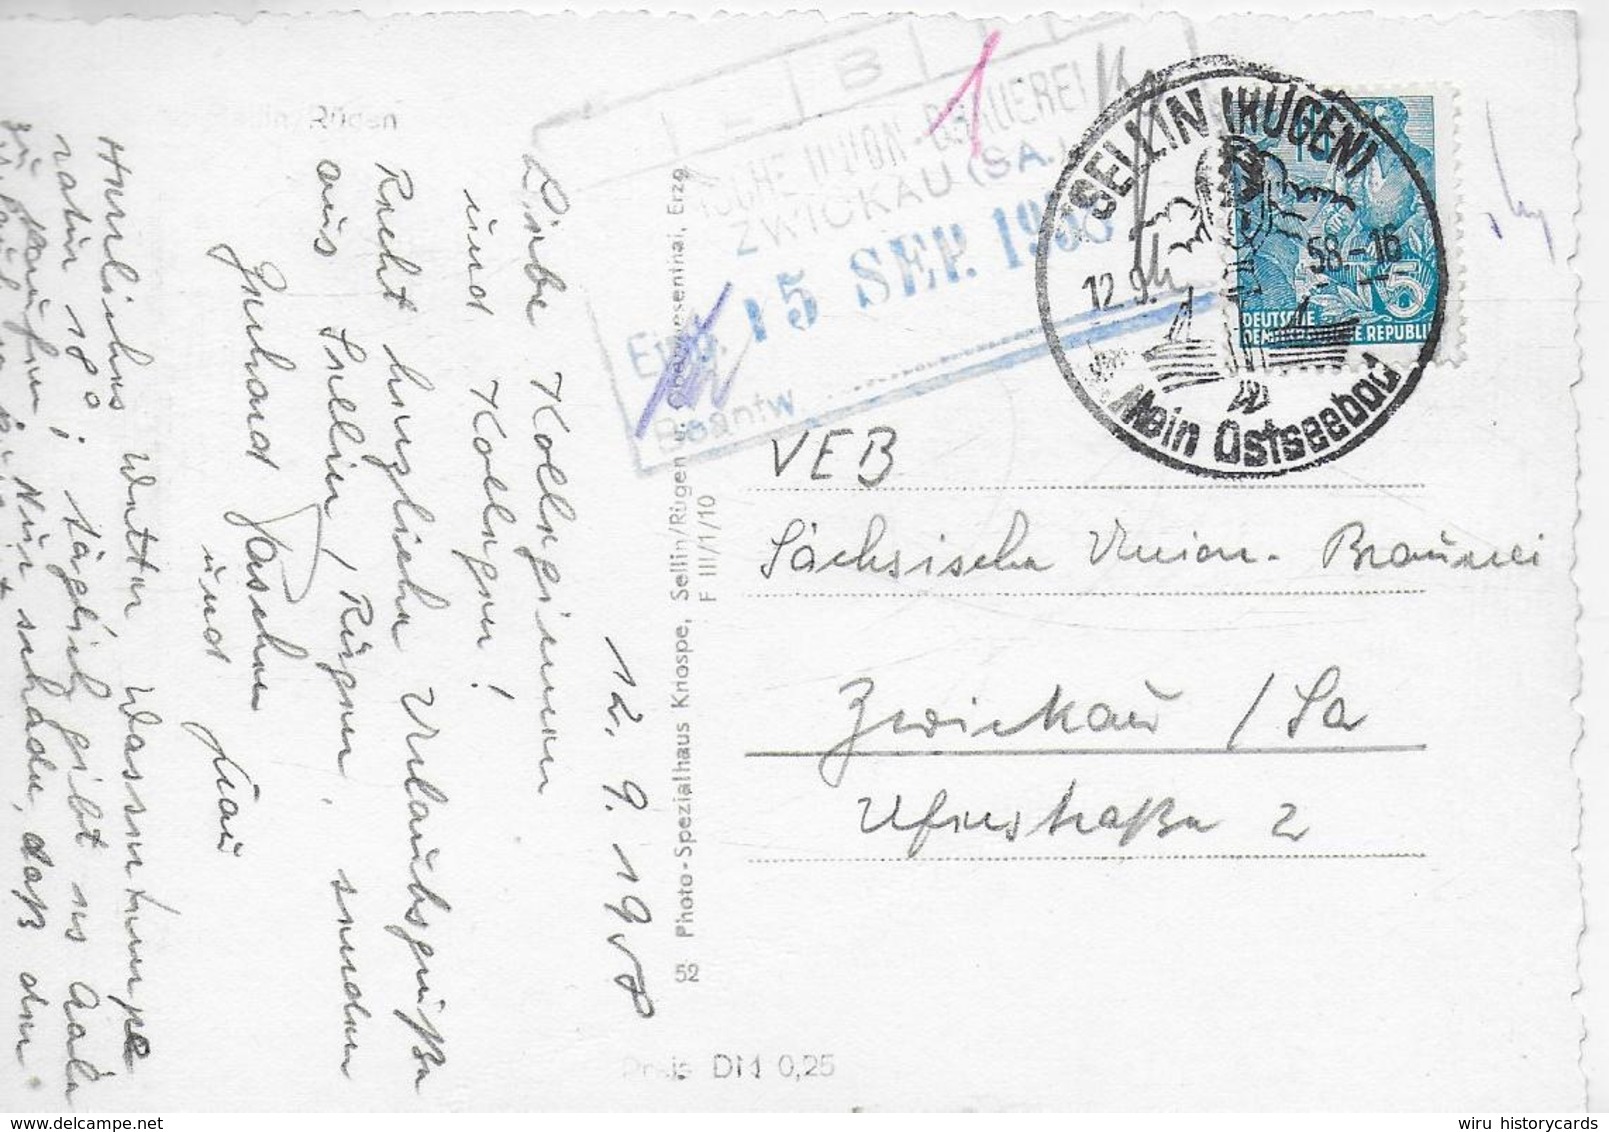 12. 9. 1958
Liebe Kolleginnen
und Kollegen!
Recht herzliche Urlaubsgrüße
aus Sellin / Rügen, senden
Gerhard
und Frau
Herrliches Wetter Wassertempe
ratur 18°; täglich gibt es Aale
zu kaufen; Nur schade, daß der
Sellin/Rügen
52 Photo-Spezialhaus Knospe, Sellin/Rügen u. Oberwiesenthal, Erzg.
F III/1/10
Preis DM 0,25
VEB
Sächsische Union-Brauerei
Zwickau / Sa
Uferstraße 2
SELLIN (RÜGEN)
12.9. 58-16
Mein Ostseebad
15
DEUTSCHE
DEMOKRATISCHE REPUBLIK
VEB
SÄCHSISCHE UNION-BRAUEREI
ZWICKAU (SA.)
Eing. 15 SEP. 1958
Beantw.
1
wiru historycards